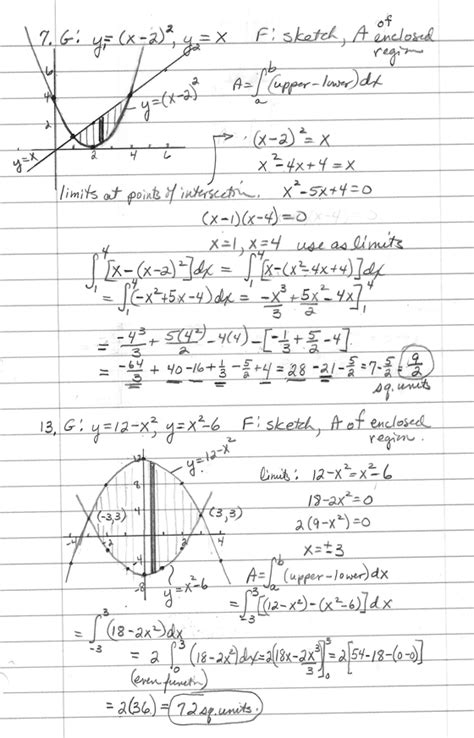 7. G: y₁=(x-2)², y₂=x F: sketch, A of enclosed region
A=∫ₐᵇ(upper-lower)dx
y=(x-2)²
6
4
2
2 4 6
y=x
(x-2)²=x
x²-4x+4=x
limits at points of intersection. x²-5x+4=0
(x-1)(x-4)=0
x=1, x=4 use as limits
∫₁⁴[x-(x-2)²]dx = ∫₁⁴[x-(x²-4x+4)]dx
= ∫₁⁴(-x²+5x-4)dx = -x³/3 + 5x²/2 - 4x]₁⁴
= -4³/3 + 5(4²)/2 - 4(4) - [-1/3 + 5/2 - 4]
= -64/3 + 40 - 16 + 1/3 - 5/2 + 4 = 28 - 21 - 5/2 = 7 - 5/2 = 9/2
sq. units
13. G: y=12-x², y=x²-6 F: sketch, A of enclosed region.
y=12-x²
12
8
4
(-3,3) (3,3)
-4 -2 2 4
-4
-8
y=x²-6
limits: 12-x²=x²-6
18-2x²=0
2(9-x²)=0
x=±3
A=∫ₐᵇ(upper-lower)dx
=∫₋₃³[(12-x²)-(x²-6)]dx
=∫₋₃³(18-2x²)dx
= 2∫₀³(18-2x²)dx=2[18x-2x³/3]₀³=2[54-18-(0-0)]
(even function)
=2(36)=72 sq. units.